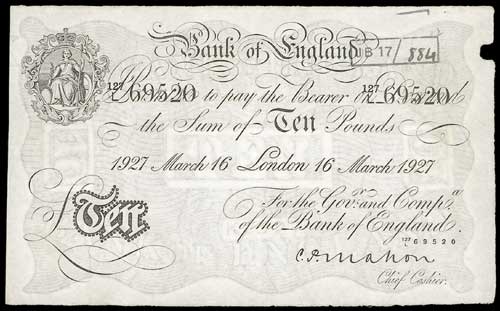 Bank of England
B 17 / 884
127/L 69520 to pay the Bearer on 127/L 69520
the Sum of Ten Pounds
1927 March 16 London 16 March 1927
For the Govr. and Compa.
of the Bank of England.
127/L 69520
£Ten
C.P. Mahon
Chief Cashier.